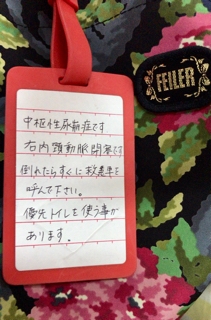 中枢性尿崩症です
右内頸動脈閉塞です
倒れたらすぐに救急車を
呼んで下さい。
優先トイレを使う事が
あります。
FEILER